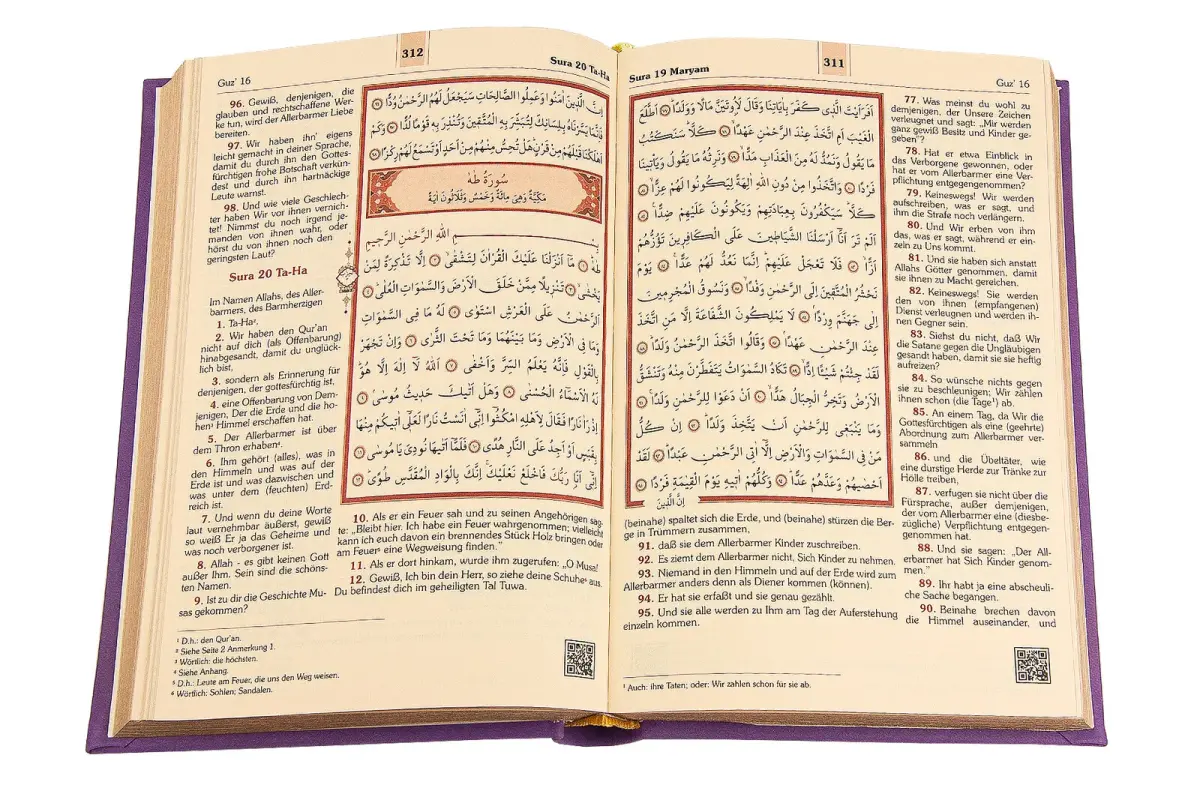 Sura 19 Maryam
311
Guz' 16
اَفَرَاَيْتَ الَّذٖي كَفَرَ بِاٰيَاتِنَا وَقَالَ لَاُوتَيَنَّ مَالًا وَوَلَدًا ﴿٧٧﴾ اَطَّلَعَ
الْغَيْبَ اَمِ اتَّخَذَ عِنْدَ الرَّحْمٰنِ عَهْدًا ﴿٧٨﴾ كَلَّا سَنَكْتُبُ
مَا يَقُولُ وَنَمُدُّ لَهُ مِنَ الْعَذَابِ مَدًّا ﴿٧٩﴾ وَنَرِثُهُ مَا يَقُولُ وَيَأْتٖينَا
فَرْدًا ﴿٨٠﴾ وَاتَّخَذُوا مِنْ دُونِ اللّٰهِ اٰلِهَةً لِيَكُونُوا لَهُمْ عِزًّا ﴿٨١﴾
كَلَّا سَيَكْفُرُونَ بِعِبَادَتِهِمْ وَيَكُونُونَ عَلَيْهِمْ ضِدًّا ﴿٨٢﴾
اَلَمْ تَرَ اَنَّا اَرْسَلْنَا الشَّيَاطٖينَ عَلَى الْكَافِرٖينَ تَؤُزُّهُمْ
اَزًّا ﴿٨٣﴾ فَلَا تَعْجَلْ عَلَيْهِمْ اِنَّمَا نَعُدُّ لَهُمْ عَدًّا ﴿٨٤﴾ يَوْمَ
نَحْشُرُ الْمُتَّقٖينَ اِلَى الرَّحْمٰنِ وَفْدًا ﴿٨٥﴾ وَنَسُوقُ الْمُجْرِمٖينَ
اِلٰى جَهَنَّمَ وِرْدًا ﴿٨٦﴾ لَا يَمْلِكُونَ الشَّفَاعَةَ اِلَّا مَنِ اتَّخَذَ
عِنْدَ الرَّحْمٰنِ عَهْدًا ﴿٨٧﴾ وَقَالُوا اتَّخَذَ الرَّحْمٰنُ وَلَدًا ﴿٨٨﴾
لَقَدْ جِئْتُمْ شَيْـًٔا اِدًّا ﴿٨٩﴾ تَكَادُ السَّمٰوَاتُ يَتَفَطَّرْنَ مِنْهُ وَتَنْشَقُّ
الْاَرْضُ وَتَخِرُّ الْجِبَالُ هَدًّا ﴿٩٠﴾ اَنْ دَعَوْا لِلرَّحْمٰنِ وَلَدًا ﴿٩١﴾
وَمَا يَنْبَغٖي لِلرَّحْمٰنِ اَنْ يَتَّخِذَ وَلَدًا ﴿٩٢﴾ اِنْ كُلُّ
مَنْ فِي السَّمٰوَاتِ وَالْاَرْضِ اِلَّا اٰتِي الرَّحْمٰنِ عَبْدًا ﴿٩٣﴾ لَقَدْ
اَحْصٰيهُمْ وَعَدَّهُمْ عَدًّا ﴿٩٤﴾ وَكُلُّهُمْ اٰتٖيهِ يَوْمَ الْقِيٰمَةِ فَرْدًا ﴿٩٥﴾
اِنَّ الَّذٖينَ
77. Was meinst du wohl zu
demjenigen, der Unsere Zeichen
verleugnet und sagt: „Mir werden
ganz gewiß Besitz und Kinder ge-
geben"?
78. Hat er etwa Einblick in
das Verborgene gewonnen, oder
hat er vom Allerbarmer eine Ver-
pflichtung entgegengenommen?
79. Keineswegs! Wir werden
aufschreiben, was er sagt, und
ihm die Strafe noch verlängern.
80. Und Wir erben von ihm
das, was er sagt, während er ein-
zeln zu Uns kommt.
81. Und sie haben sich anstatt
Allahs Götter genommen, damit
sie ihnen zu Macht gereichen.
82. Keineswegs! Sie werden
den von ihnen (empfangenen)
Dienst verleugnen und werden ih-
nen Gegner sein.
83. Siehst du nicht, daß Wir
die Satane gegen die Ungläubigen
gesandt haben, damit sie sie heftig
aufreizen?
84. So wünsche nichts gegen
sie zu beschleunigen; Wir zählen
ihnen schon (die Tage¹) ab.
85. An einem Tag, da Wir die
Gottesfürchtigen als eine (geehrte)
Abordnung zum Allerbarmer ver-
sammeln
86. und die Übeltäter, wie
eine durstige Herde zur Tränke zur
Hölle treiben,
87. verfügen sie nicht über die
Fürsprache, außer demjenigen,
der vom Allerbarmer eine (diesbe-
zügliche) Verpflichtung entgegen-
genommen hat.
88. Und sie sagen: „Der All-
erbarmer hat Sich Kinder genom-
men."
89. Ihr habt ja eine abscheuli-
che Sache begangen.
90. Beinahe brechen davon
die Himmel auseinander, und
(beinahe) spaltet sich die Erde, und (beinahe) stürzen die Ber-
ge in Trümmern zusammen,
91. daß sie dem Allerbarmer Kinder zuschreiben.
92. Es ziemt dem Allerbarmer nicht, Sich Kinder zu nehmen.
93. Niemand in den Himmeln und auf der Erde wird zum
Allerbarmer anders denn als Diener kommen (können).
94. Er hat sie erfaßt und sie genau gezählt.
95. Und sie alle werden zu Ihm am Tag der Auferstehung
einzeln kommen.
¹ Auch: ihre Taten; oder: Wir zählen schon für sie ab.
Guz' 16
312
Sura 20 Ta-Ha
اِنَّ الَّذٖينَ اٰمَنُوا وَعَمِلُوا الصَّالِحَاتِ سَيَجْعَلُ لَهُمُ الرَّحْمٰنُ وُدًّا ﴿٩٦﴾
فَاِنَّمَا يَسَّرْنَاهُ بِلِسَانِكَ لِتُبَشِّرَ بِهِ الْمُتَّقٖينَ وَتُنْذِرَ بِهٖ قَوْمًا لُدًّا ﴿٩٧﴾ وَكَمْ
اَهْلَكْنَا قَبْلَهُمْ مِنْ قَرْنٍ هَلْ تُحِسُّ مِنْهُمْ مِنْ اَحَدٍ اَوْ تَسْمَعُ لَهُمْ رِكْزًا ﴿٩٨﴾
سُورَةُ طٰهٰ
مَكِّيَّةٌ وَهِيَ مِائَةٌ وَخَمْسٌ وَثَلَاثُونَ اٰيَةً
بِسْمِ اللّٰهِ الرَّحْمٰنِ الرَّحٖيمِ
طٰهٰ ﴿١﴾ مَا اَنْزَلْنَا عَلَيْكَ الْقُرْاٰنَ لِتَشْقٰى ﴿٢﴾ اِلَّا تَذْكِرَةً لِمَنْ
يَخْشٰى ﴿٣﴾ تَنْزٖيلًا مِمَّنْ خَلَقَ الْاَرْضَ وَالسَّمٰوَاتِ الْعُلٰى ﴿٤﴾
اَلرَّحْمٰنُ عَلَى الْعَرْشِ اسْتَوٰى ﴿٥﴾ لَهُ مَا فِي السَّمٰوَاتِ
وَمَا فِي الْاَرْضِ وَمَا بَيْنَهُمَا وَمَا تَحْتَ الثَّرٰى ﴿٦﴾ وَاِنْ تَجْهَرْ
بِالْقَوْلِ فَاِنَّهُ يَعْلَمُ السِّرَّ وَاَخْفٰى ﴿٧﴾ اَللّٰهُ لَا اِلٰهَ اِلَّا هُوَ
لَهُ الْاَسْمَاءُ الْحُسْنٰى ﴿٨﴾ وَهَلْ اَتٰيكَ حَدٖيثُ مُوسٰى ﴿٩﴾
اِذْ رَاٰ نَارًا فَقَالَ لِاَهْلِهِ امْكُثُوا اِنّٖي اٰنَسْتُ نَارًا لَعَلّٖي اٰتٖيكُمْ مِنْهَا
بِقَبَسٍ اَوْ اَجِدُ عَلَى النَّارِ هُدًى ﴿١٠﴾ فَلَمَّا اَتٰيهَا نُودِيَ يَا مُوسٰى ﴿١١﴾
اِنّٖي اَنَا رَبُّكَ فَاخْلَعْ نَعْلَيْكَ اِنَّكَ بِالْوَادِ الْمُقَدَّسِ طُوًى ﴿١٢﴾
96. Gewiß, denjenigen, die
glauben und rechtschaffene Wer-
ke tun, wird der Allerbarmer Liebe
bereiten.
97. Wir haben ihn' eigens
leicht gemacht in deiner Sprache,
damit du durch ihn den Gottes-
fürchtigen frohe Botschaft verkün-
dest und durch ihn hartnäckige
Leute warnst.
98. Und wie viele Geschlech-
ter haben Wir vor ihnen vernich-
tet! Nimmst du noch irgend je-
manden von ihnen wahr, oder
hörst du von ihnen noch den
geringsten Laut?
Sura 20 Ta-Ha
Im Namen Allahs, des Aller-
barmers, des Barmherzigen
1. Ta-Ha².
2. Wir haben den Qur'an
nicht auf dich (als Offenbarung)
hinabgesandt, damit du unglück-
lich bist,
3. sondern als Erinnerung für
denjenigen, der gottesfürchtig ist,
4. eine Offenbarung von Dem-
jenigen, Der die Erde und die ho-
hen³ Himmel erschaffen hat.
5. Der Allerbarmer ist über
dem Thron erhaben⁴.
6. Ihm gehört (alles), was in
den Himmeln und was auf der
Erde ist und was dazwischen und
was unter dem (feuchten) Erd-
reich ist.
7. Und wenn du deine Worte
laut vernehmbar äußerst, gewiß
so weiß Er ja das Geheime und
was noch verborgener ist.
8. Allah - es gibt keinen Gott
außer Ihm. Sein sind die schöns-
ten Namen.
9. Ist zu dir die Geschichte Mu-
sas gekommen?
10. Als er ein Feuer sah und zu seinen Angehörigen sag-
te: „Bleibt hier. Ich habe ein Feuer wahrgenommen; vielleicht
kann ich euch davon ein brennendes Stück Holz bringen oder
am Feuer⁵ eine Wegweisung finden."
11. Als er dort hinkam, wurde ihm zugerufen: „O Musa!
12. Gewiß, Ich bin dein Herr, so ziehe deine Schuhe⁶ aus.
Du befindest dich im geheiligten Tal Tuwa.
¹ D.h.: den Qur'an.
² Siehe Seite 2 Anmerkung 1.
³ Wörtlich: die höchsten.
⁴ Siehe Anhang.
⁵ D.h.: Leute am Feuer, die uns den Weg weisen.
⁶ Wörtlich: Sohlen; Sandalen.